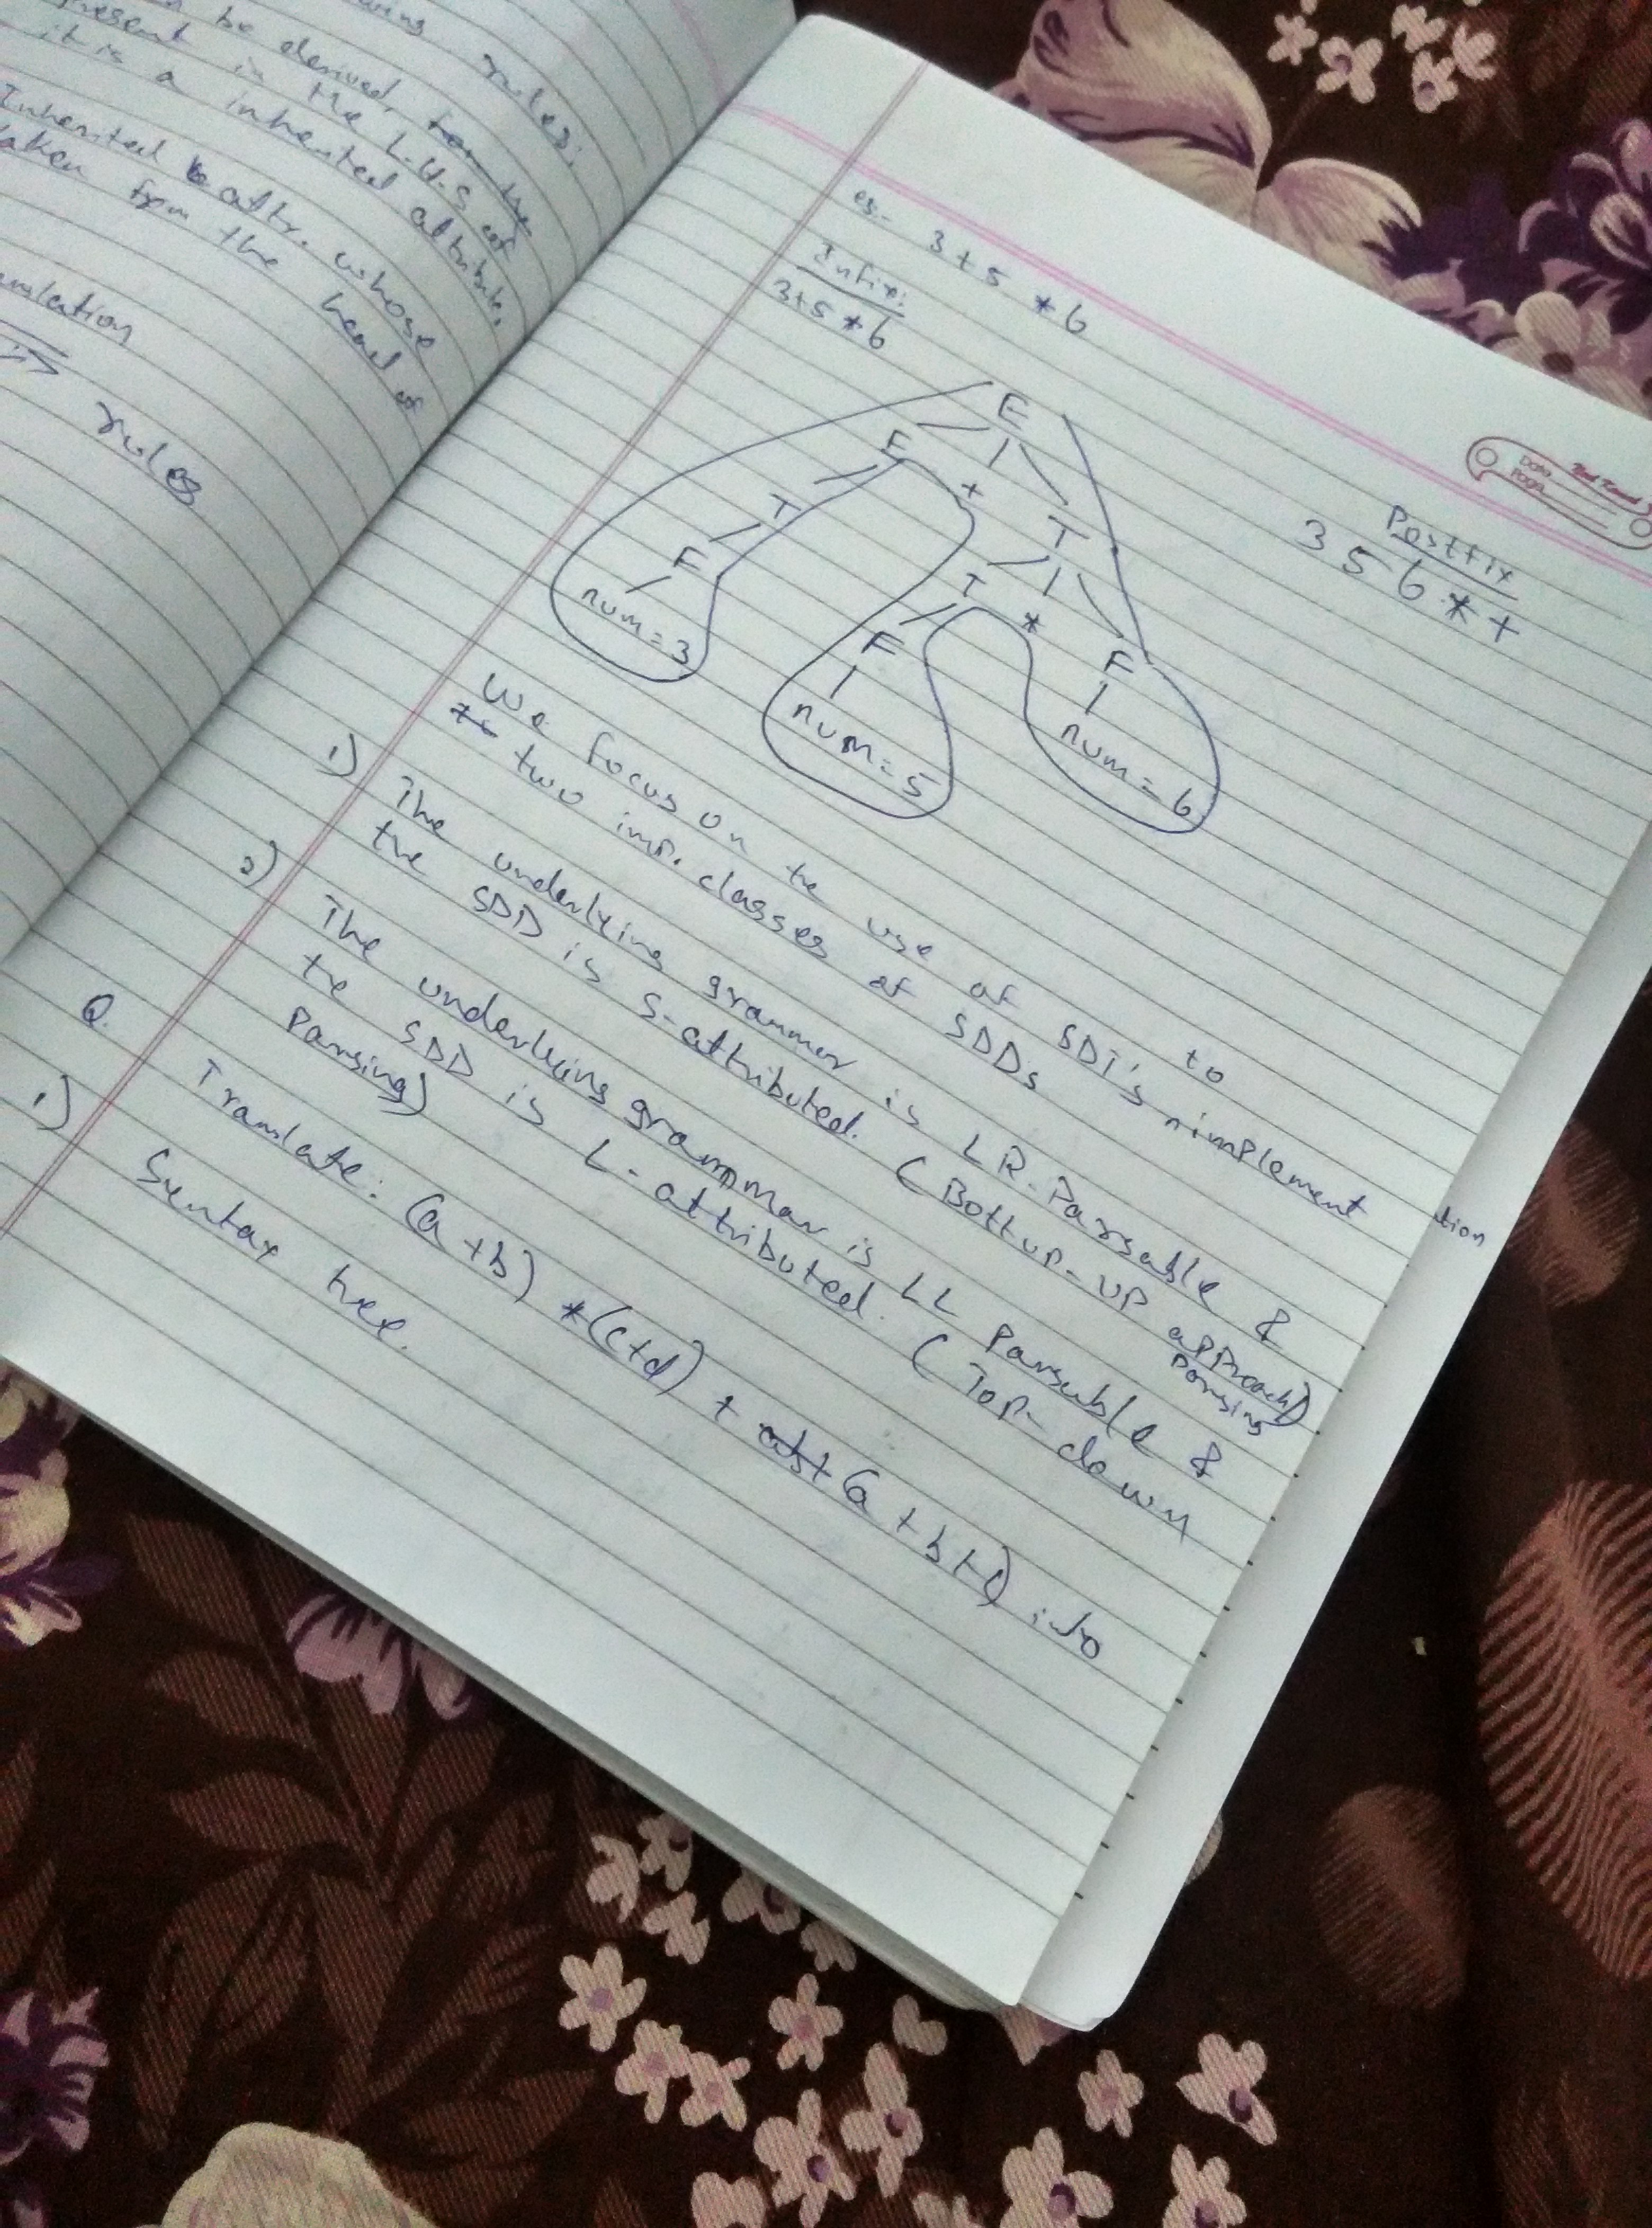 rules:
be derived from the
present in the L.H.S of
it is a inherited attribute,
Inherited attr. whose
taken from the head of
rules
eg:- 3 + 5 * 6
Infix:
3+5*6
Postfix
3 5 6 * +
E
E + T
T T * F
F F
num=3 num=5 num=6
We focus on the use of SDT's to
two imp. classes of SDDs implement
1) The underlying grammer is LR-Parsable &
the SDD is S-attributed. (Bottup-up approach)
Parsing
2) The underlying grammar is LL Parsable &
the SDD is L-attributed. (Top-down
Parsing)
Q. Translate: (a+b) *(c+d) + (a+b+c) into
1) Syntax tree.
tion